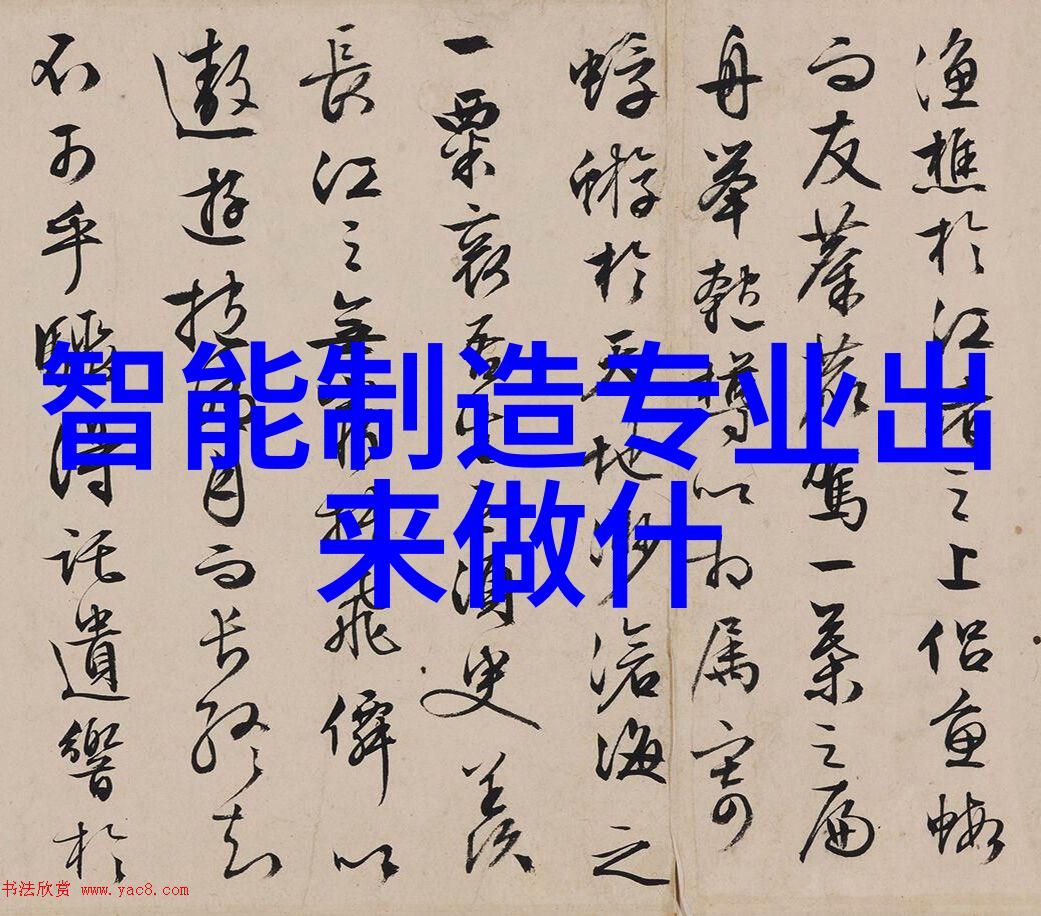 智能制造专业出
来做什
渔樵於江渚之上侣鱼蝦
而友麋鹿驾一葉之扁
舟举匏樽以相属寄
蜉蝣於天地渺滄海之
一粟哀吾生之须臾羨
長江之無窮挾飛僊以
遨遊抱明月而长终知
不可乎驟得託遺響於
书法欣赏 www.yac8.com